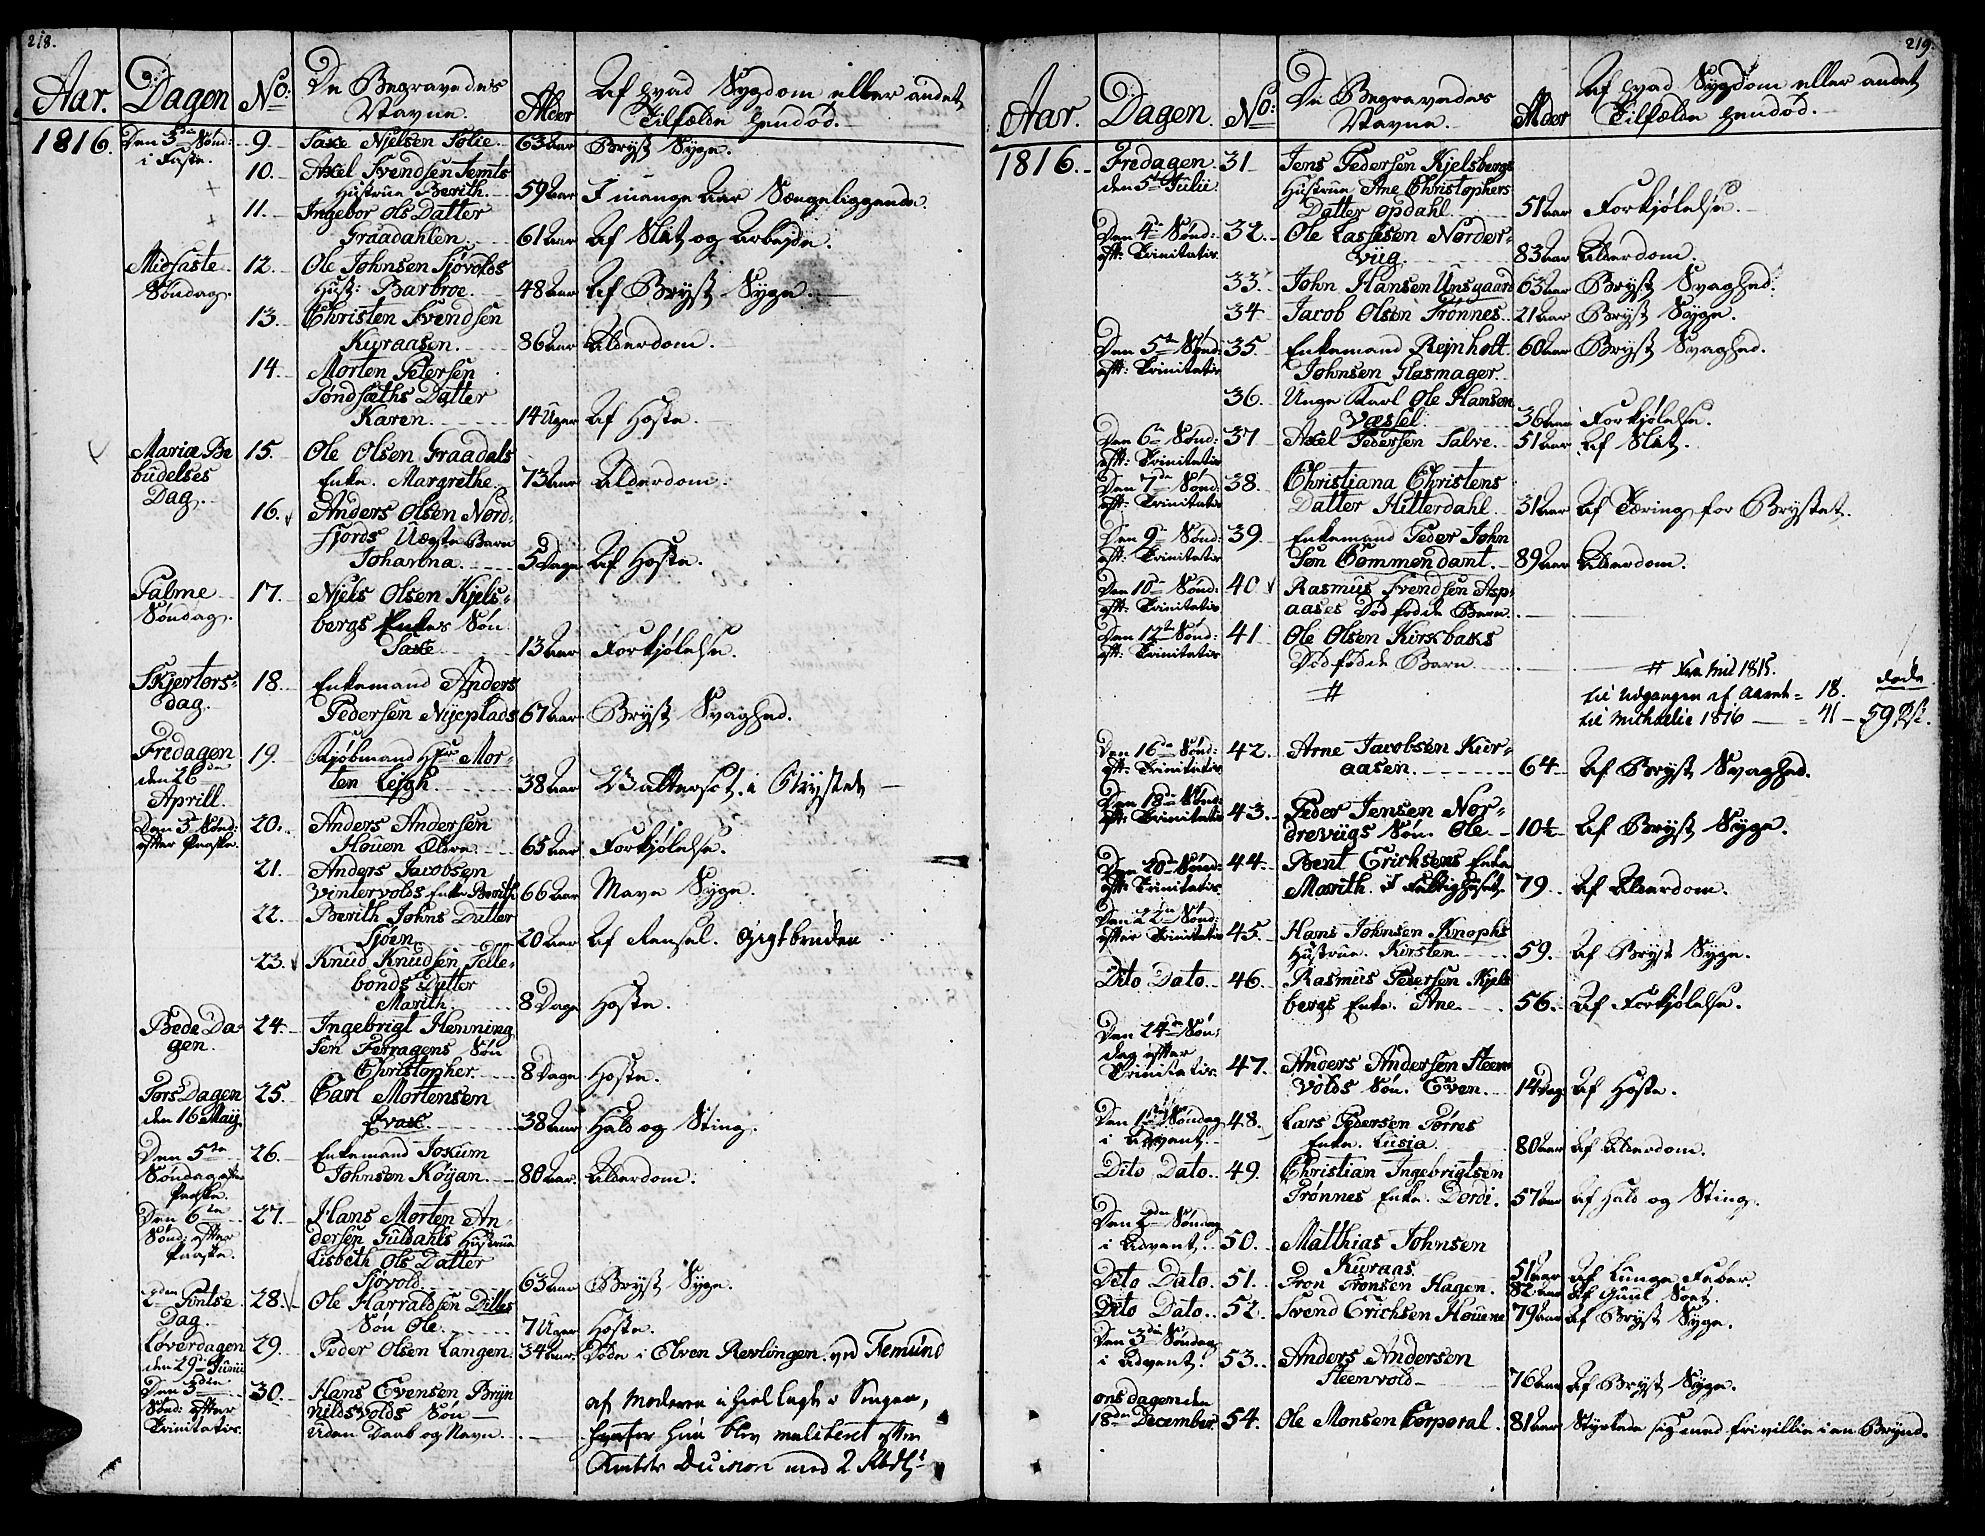 218.
Aar. Dagen No: De Begravedes Navne. Alder Af hvad Sygdom eller andet Tilfælde hendød.
1816. Den 3die Sønd: i Faste. 9. Saxe Njelsen Solie. 63 Aar Bryst Syge.
10. Axel Svendsen Temts
Hustrue Berith. 59 Aar I mange Aar Sængeliggende.
11. Ingebor Ols Datter
Graadahlen. 61 Aar Af Slit og Arbejde.
Midfaste Søndag. 12. Ole Johnsen Sjøvolds
Hust: Barbroe. 48 Aar Af Bryst Syge.
13. Christen Svendsen
Kuraasen. 86 Aar Alderdom.
14. Morten Petersen
Søndsæths Datter
Karen. 14 Uger Af Hoste.
Mariæ Be
budelses
Dag. 15. Ole Olsen Graadals
Enke. Margrethe. 73 Aar Alderdom.
16. Anders Olsen Nord-
fjords Uægte Barn
Johanna. 5 Dage Af Hoste.
Palme
Søndag. 17. Njels Olsen Kjels-
bergs Enkes Søn
Saxe 13 Aar Forkjølelse.
Skjertors-
dag. 18. Enkemand Anders
Pedersen Nyeplads 67 Aar Bryst Svaghed.
Fredagen
den 26
Aprill. 19. Kjøbmand Hr Mor-
ten Lejgh. 38 Aar Wattersot i Brystet
Den 3 Sønd:
efter Paaske. 20. Anders Andersen
Houen Øvre. 65 Aar Forkjølelse.
21. Anders Jacobsen
Vintervolds Enke Berith 66 Aar Mave Syge.
22. Berith Johns Datter
Sjøen 20 Aar Af Rensel. Gigtbruden
23. Knud Knudsen Tolle-
bonds Datter
Marith. 8 Dage Hoste.
Bede Da-
gen. 24. Ingebrigt Henning
sen Ferragens Søn
Christopher. 8 Dage Hoste.
Torsdagen
den 16 Maij 25. Carl Mortensen
Qvale 38 Aar Hald og Sting.
Den 5te
Søndag efter
Paaske. 26. Enkemand Jokum
Johnsen Kojan. 80 Aar. Alderdom.
Den 6te
Sønd: efter
Paaske. 27. Hans Morten An-
dersen Guldahls Hustrue
Lisbeth Ols Datter
Sjøvold. 63 Aar Bryst Syge.
2den Pintse
Dag. 28. Ole Harraldsen Dilles
Søn Ole. 7 Uger Hoste.
Løverdagen
den 29 Junii 29. Peder Olsen Langen. 34 Aar. Døde i Elven Revlingen ved Femund
Den 3die
Sønd: efter
Trinitatis. 30. Hans Evensen Bryn
hildsvolds Søn
Uden Daab og Navn. af Moderen ihiel lagt i Sengen,
hvorfor hun blev mulcteret efter
Amtets Decision med 2 Rbdl.
219.
Aar. Dagen. No: De Begravedes Navne. Alder Af hvad Sygdom eller andet Tilfælde hendød.
1816. Fredagen
den 5 Julii 31 Jens Pedersen Kjelsbergs
Hustrue Ane Christophers
Datter Opdahl. 51 Aar Forkjølelse.
Den 4de Sønd:
eft: Trinitatis 32. Ole Lassesen Norder-
vug. 83 Aar Alderdom.
33 John Hansen Unsgaard 63 Aar Bryst Svaghed.
34 Jacob Olsen Trønnes. 21 Aar Bryst Syge.
Den 5te Sønd:
eft: Trinitatis 35 Enkemand Rejnholt
Johnsen Glasmager. 60 Aar Bryst Svaghed.
36. Unge Karl Ole Hansen
Væssel 36 Aar Forkjølelse.
Den 6te Sønd:
eft: Trinitatis 37 Axel Pedersen Salve. 51 Aar Af Slit.
Den 7de Sønd:
eft: Trinitatis 38. Christiana Christens
Datter Hitterdahl. 31 Aar Af Tæring for Brystet.
Den 9de Sønd:
eft: Trinitatis 39 Enkemand Peder John
sen Commendant. 89 Aar Alderdom.
Den 10de Sønd:
eft: Trinitatis 40 Rasmus Svendsen Asp-
aases Dødfødde Barn
Den 12te Sønd:
eft: Trinitatis 41 Ole Olsen Kirkbaks
Dødfødde Barn
#
# Fra Mid 1815. Døde
til Udgangen af Aaret = 18.
til Michalie 1816 = 41 - 59 St.
Den 16de Sønd:
eft: Trinitatis 42. Arne Jacobsen Kur-
aasen. 64 Af Bryst Svaghed.
Den 18de Sønd:
eft: Trinitatis 43. Peder Jensen Nor-
drevugs Søn Ole 10½ Af Bryst Syge.
Den 20de Sønd:
eft: Trinitatis. 44. Bent Erichsens Enke
Marith. i Fattighuset. 79. Af Alderdom.
Den 22de Sønd:
efter Trinitatis 45. Hans Johnsen Knophs
Hustrue. Kirsten 59. Af Bryst Syge.
Dito Dato 46. Rasmus Pedersen Kjels
bergs Enke. Ane. 56. Af Forkjølelse.
Den 24de Søn-
dag efter
Trinitatis. 47. Anders Andersen Steen
volds Søn. Even. 14 Dag. Af Hoste.
Den 1ste Søndag
i Advent. 48. Lars Pedersen Torres
Enke. Lusia. 80 Aar Af Alderdom.
Dito Dato. 49. Christian Ingebrigtsen
Trønnes Enke. Dordi. 57 Aar Af Hald og Sting.
Den 2den Søndag
i Advent. 50. Matthias Johnsen
Kuraas. 51 Aar Af Lunge Feber.
Dito Dato. 51. Tron Tronsen Hagen. 82 Aar Af Guul Sot.
Dito Dato. 52. Svend Erichsen Houene 79 Aar Af Bryst Syge.
Den 3die Søndag
i Advent. 53. Anders Andersen
Steenvold 76 Aar Af Bryst Syge.
onsdagen den
18de December. 54. Ole Monsen Corporal. 81 Aar Styrtede sig med frivillie i en Brynd.